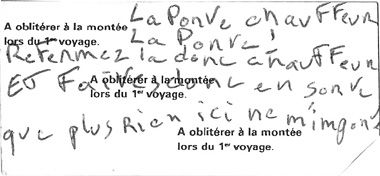 La Porte chauffeur
A oblitérer à la montée
lors du 1er voyage.
La Porte!
Refermez la donc chauffeur
A oblitérer à la montée
lors du 1er voyage.
ET Faites donc en sorte
que plus Rien ici ne m'importe
A oblitérer à la montée
lors du 1er voyage.